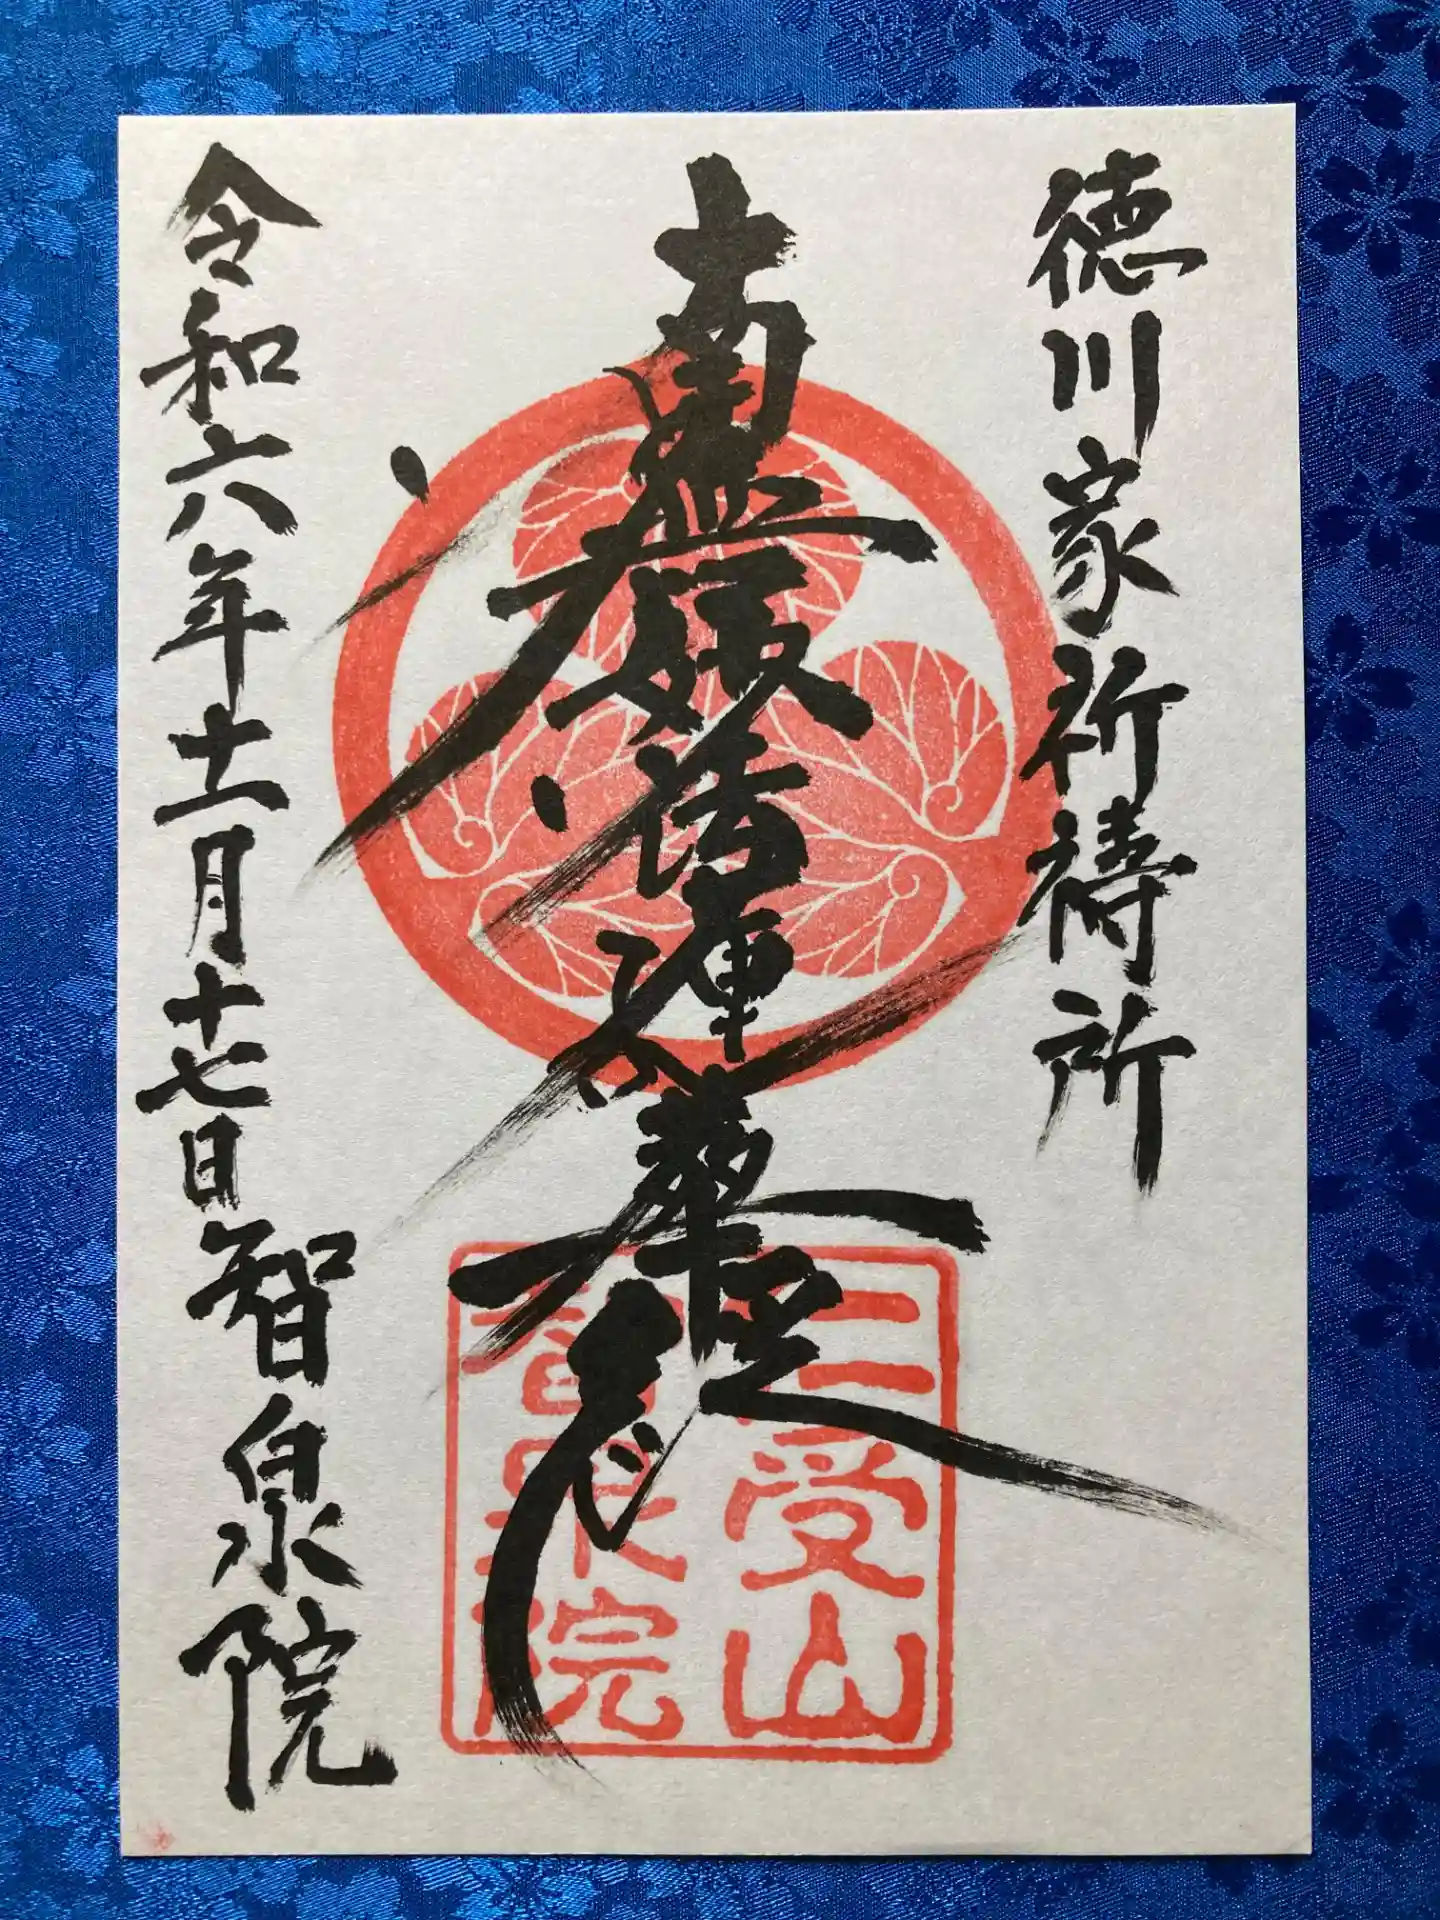 徳川家祈祷所
南無妙法蓮華経
令和六年十二月十七日 智泉院
三受山
智泉院